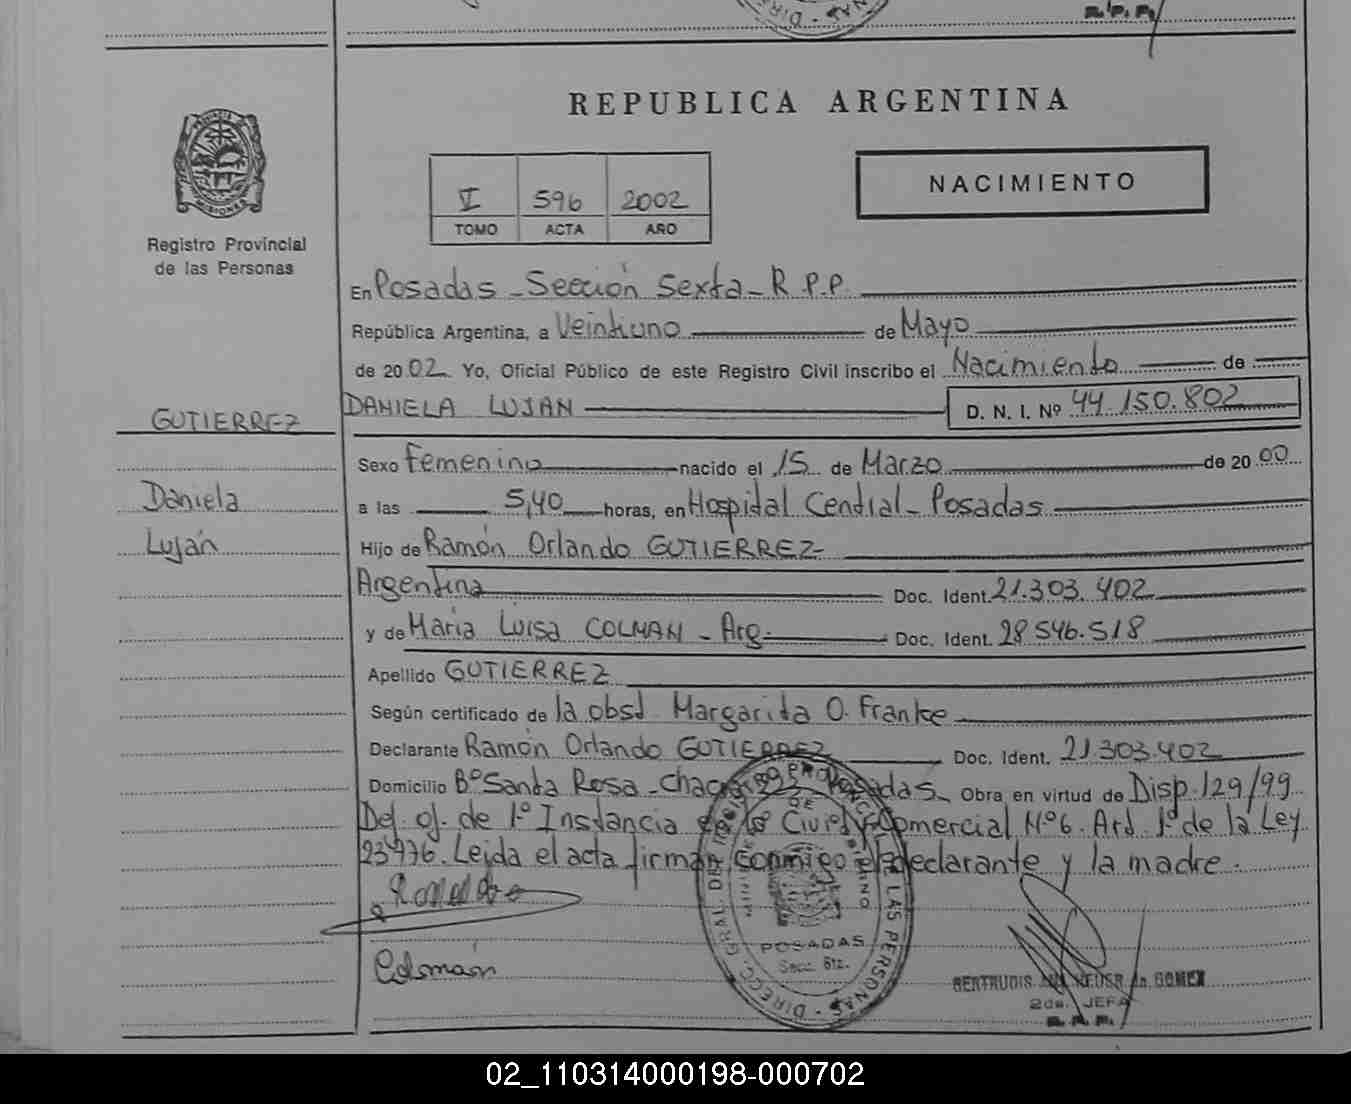 R.P.P.
REPUBLICA ARGENTINA
NACIMIENTO
VI 596 2002
TOMO ACTA AÑO
MISIONES
Registro Provincial
de las Personas
En Posadas - Sección Sexta - R.P.P.
República Argentina, a Veintiuno de Mayo
de 2002 Yo, Oficial Público de este Registro Civil inscribo el Nacimiento de
DANIELA LUJAN D. N. I. Nº 44.150.802
GUTIERREZ
Daniela
Luján
Sexo Femenino nacido el 15 de Marzo de 2000
a las 5,40 horas, en Hospital Central - Posadas
Hijo de Ramón Orlando GUTIERREZ
Argentina Doc. Ident. 21.303.402
y de María Luisa COLMAN - Arg. Doc. Ident. 28.546.518
Apellido GUTIERREZ
Según certificado de la obst. Margarita O. Franke
Declarante Ramón Orlando GUTIERREZ Doc. Ident. 21.303.402
Domicilio Bº Santa Rosa - Posadas Obra en virtud de Disp. 129/99
Del of. de 1º Instancia Civil y Comercial Nº6. Art. 1º de la Ley
Leida el acta firman conmigo el declarante y la madre.
Colmán
DIRECC. GRAL. DEL REGISTRO PROVINCIAL DE LAS PERSONAS
POSADAS
Secc. 6ta.
GERTRUDIS de GOMEZ
2da. JEFA
R.P.P.
02_110314000198-000702